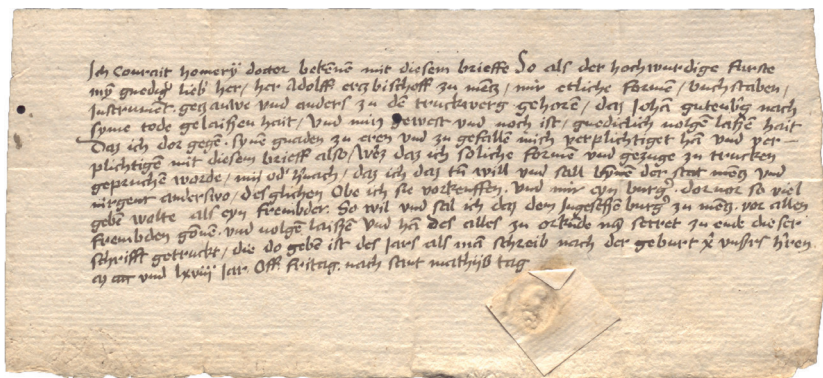 Ich Conrait homerÿ doctor bekēnen mit diesem brieffe So als der hochwurdige furste
mÿn gnedigʼ lieb' her / her Adolff ertzbischoff zu mētz / mir etliche formen / buchstaben /
Instrument. getzauwe vnd anders zu dē truckwerg gehoren / daz Johā gutenbʼg nach
syme tode gelaißen hait / vnd mirs gewest vnd noch ist / gnediclich volgen laißen hait
Daz ich dor gegē. synē gnaden zu eren vnd zu gefallen mich verplichtiget hā vnd ver-
plichtigen mit diesem brieff also / Wez daz ich soliche formē vnd getzuge zu trucken
gepruchen worde / nuͦ od' hʼnach / daz ich daz tū will vnd sall bynnē der stat mētz vnd
nirgent anderswo / desglichen Obe ich sie vorkeuffen. vnd mir eyn burgʼ. dor vor so viel
gebē wolte als eyn frembder. So wil vnd sal ich daz dem Jngesessen burgʼ zu mētz. vor allen
frembden gōnē. vnd volgen laißen vnd hā Des alles zu orkūde myn secret zu ende dieser
schrifft getruckt / die do gebē ist des Jars als mā schreib nach der geburt xᵖi vnsers hʼren
vnd lxviij Jar. Off fritag. nach sant mathijß tag